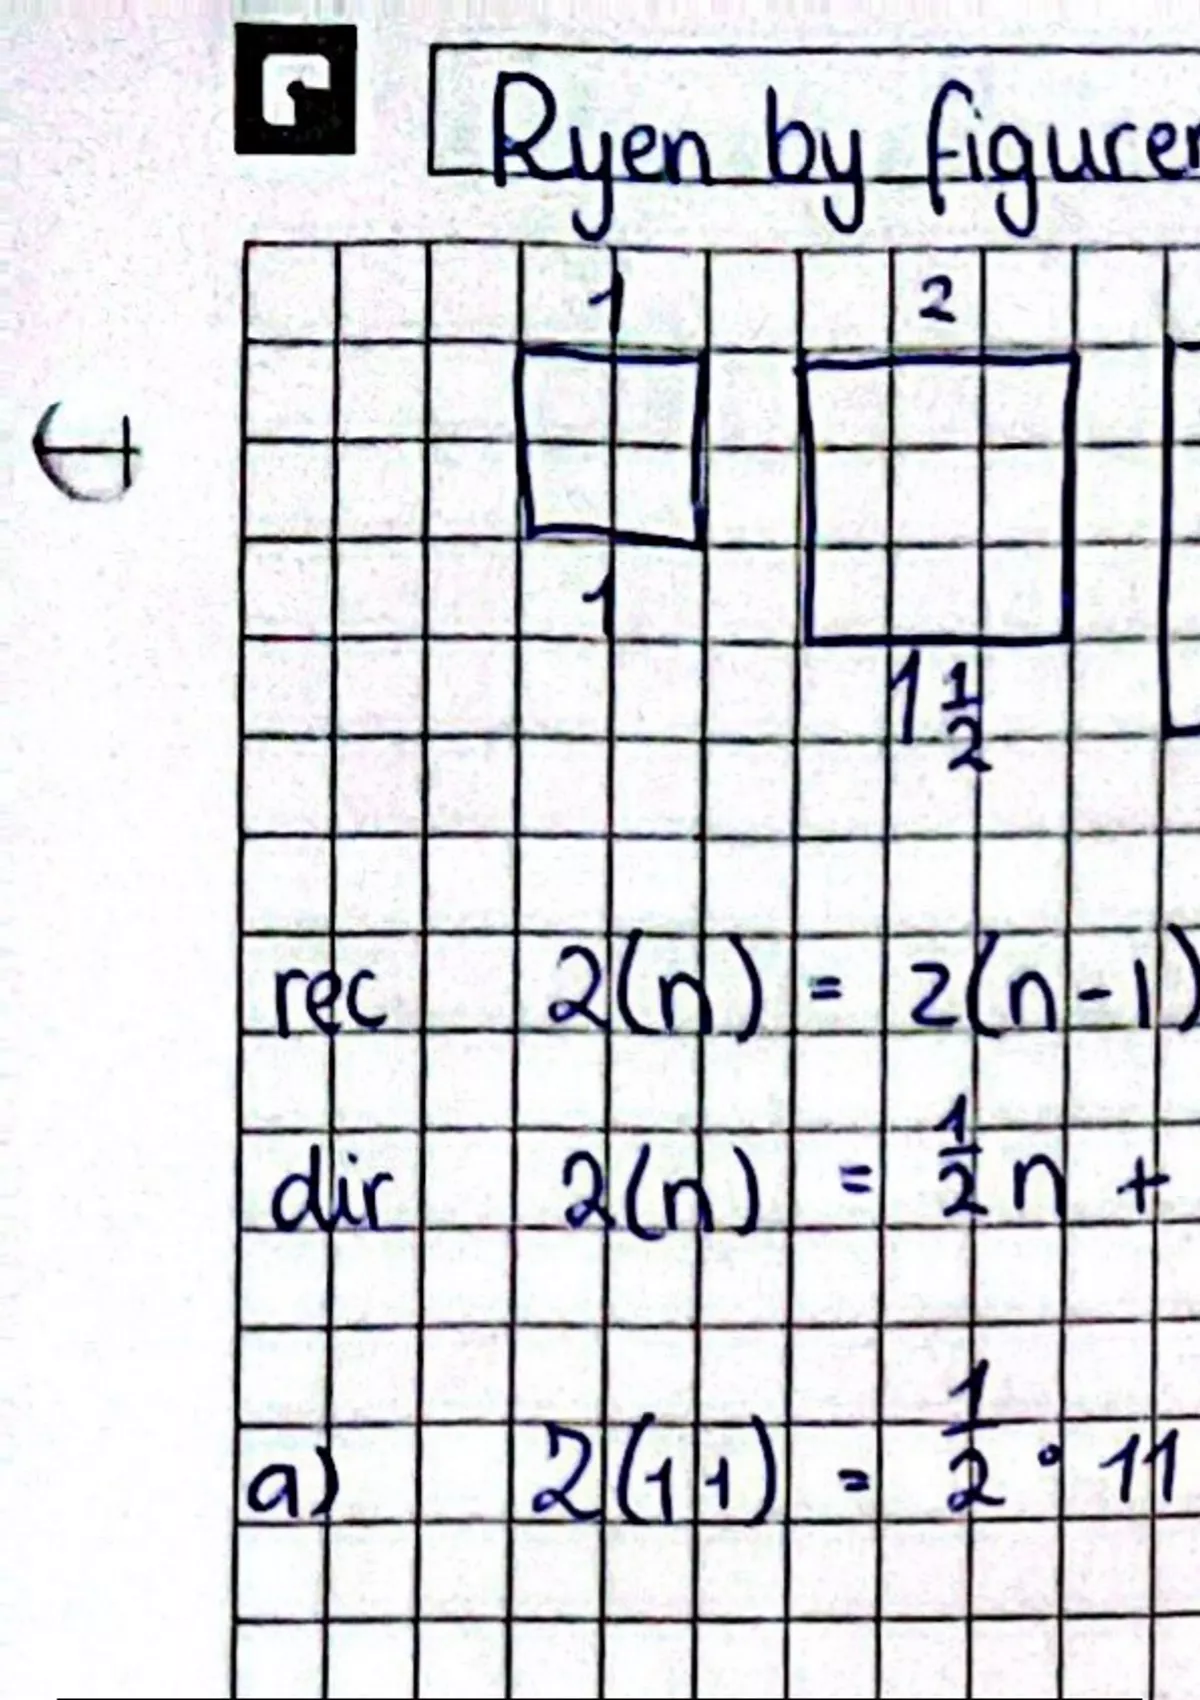 Ryen by figuren
1 2
1
1 1/2
rec 2(n) = 2(n-1)
dir 2(n) = 1/2 n +
a) 2(11) = 1/2 · 11